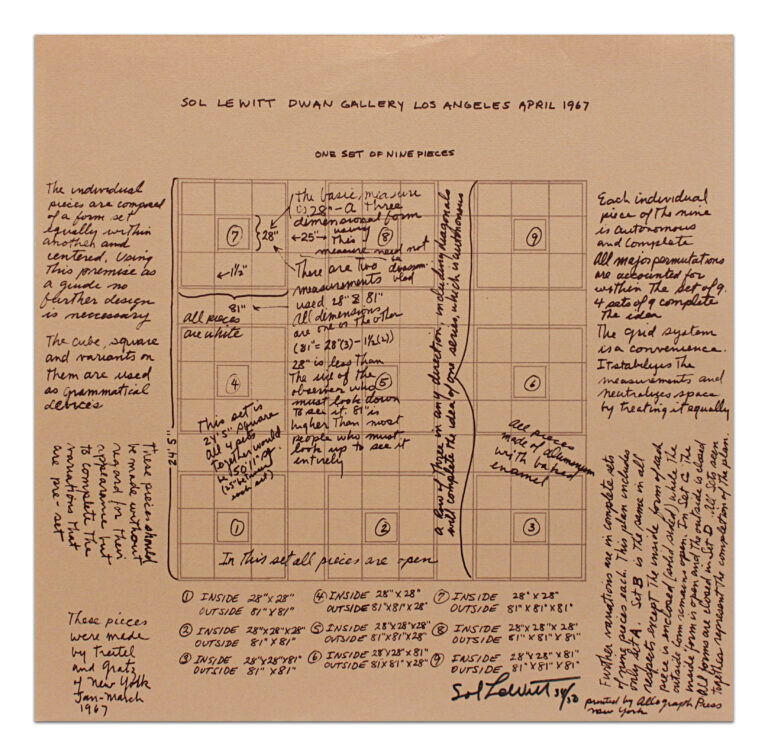 SOL LEWITT DWAN GALLERY LOS ANGELES APRIL 1967
ONE SET OF NINE PIECES
The individual
pieces are composed
of a form set
equally within
another and
centered. Using
this premise as
a guide no
further design
is necessary
The cube, square
and variants on
them are used
as grammatical
devices
These pieces should
be made without
regard for their
appearance but
to complete the
variations that
are pre-set
These pieces
were made
by Treitel
and Gratz
of New York
Jan-March
1967
24'5"
7
28"
1½"
81"
All pieces
are white
the basic measure
is 28" - A three
dimensional form
using
this
measure need not
be
25"
8
There are two
measurements
used 28" & 81"
All dimensions
are one or the other
(81" = 28"(3) - 1½(2))
28" is less than
the size of the
observer who
must look down
to see it. 81" is
higher than most
people who must
look up to see it
entirely
4
5
6
9
This set is
24'5" square
all 4 sets
together would
be 50'11" sq
(25" between
each set)
a row of three in any direction, including diagonals
will complete the idea of one series, which is autonomous
All pieces
made of aluminum
with baked
enamel
1
2
3
In this set all pieces are open
1 INSIDE 28"X28"
OUTSIDE 81"X81"
2 INSIDE 28"X28"X28"
OUTSIDE 81"X81"
3 INSIDE 28"X28"X81"
OUTSIDE 81"X81"
4 INSIDE 28"X28"
OUTSIDE 81"X81"X28"
5 INSIDE 28"X28"X28"
OUTSIDE 81"X81"X28"
6 INSIDE 28"X28"X81"
OUTSIDE 81"X81"X28"
7 INSIDE 28"X28"
OUTSIDE 81"X81"X81"
8 INSIDE 28"X28"X28"
OUTSIDE 81"X81"X81"
9 INSIDE 28"X28"X81"
OUTSIDE 81"X81"X81"
Each individual
piece of the nine
is autonomous
and complete
All major permutations
are accounted for
within the set of 9.
4 sets of 9 complete
the idea
The grid system
is a convenience.
It stabilizes the
measurements and
neutralizes space
by treating it equally
Further variations are in complete sets
of nine pieces each. This plan includes
only set A. Set B is the same in all
respects except the inside form of each
piece is enclosed (solid sided) while the
outside form remains open. In Set C the
inside form is open and the outside is closed
All forms are closed in Set D. All Sets seen
together represent the completion of the plan.
Sol LeWitt /50
printed by Allograph Press
New York